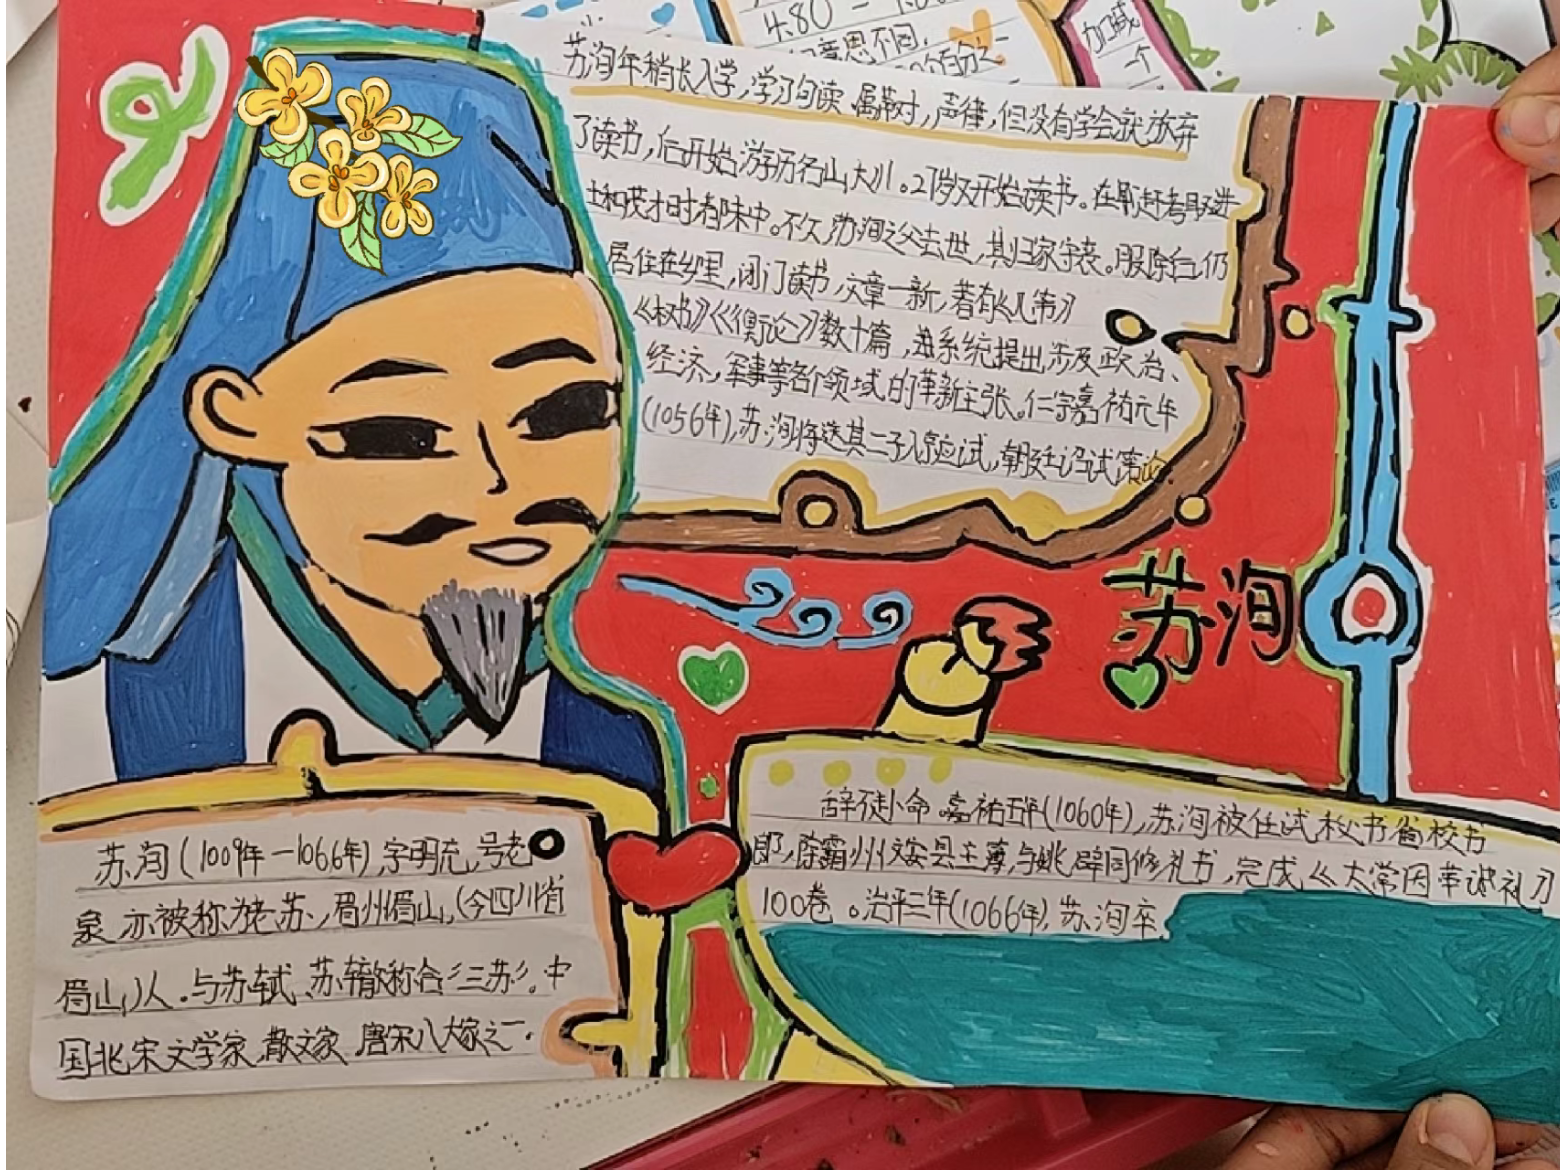 480
意思不同
加减
一个
苏洵年稍长入学,学习句读、属对,声律,但没有学会就放弃
了读书,后开始游历名山大川。27岁又开始读书。在
不久,苏洵之父去世,其归家守丧。服除后,仍
居住在乡里,闭门读书,文章一新,著有《几策》
《权书》《衡论》数十篇,进系统提出涉及政治、
经济,军事等各个领域的革新主张。仁宗嘉祐元年
(1056年),苏洵将送其二子入京应试,朝廷召试策论.
苏洵
苏洵(1009年—1066年),字明允,号老
泉,亦被称为老苏,眉州眉山,(今四川省
眉山)人。与苏轼、苏辙称合“三苏”。中
国北宋文学家,散文家,唐宋八大家之一.
辞徒小命。嘉祐五年(1060年),苏洵被任试秘书省校书
郎,除霸州文安县主薄,与姚辟同修礼书,完成《太常因革
100卷。治平三年(1066年),苏洵卒